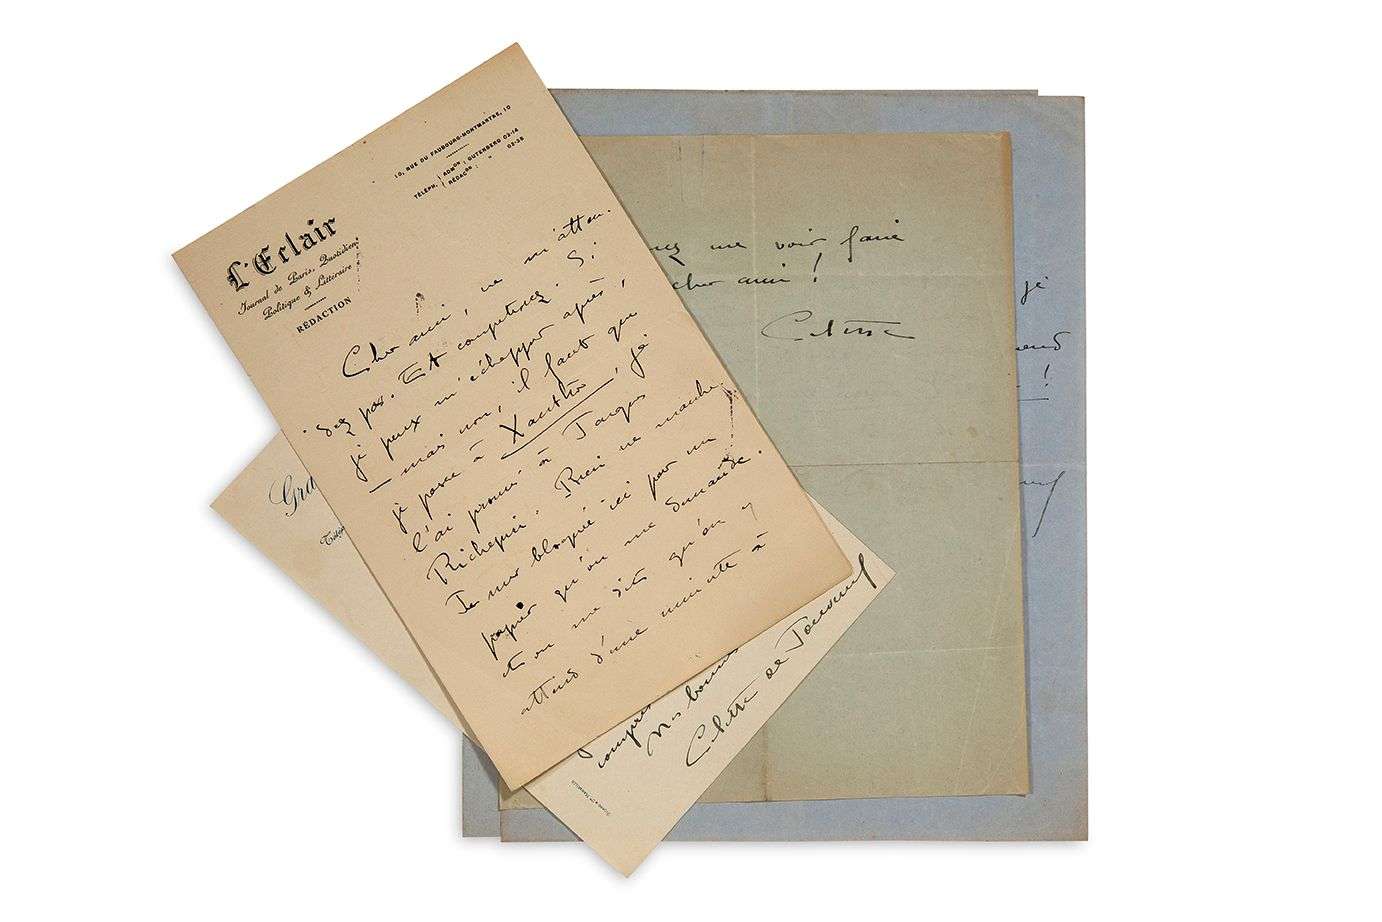 10, RUE DU FAUBOURG-MONTMARTRE, 10
TÉLÉPH. ADMON : GUTENBERG 02-14
RÉDACON : " 02-25
L'Eclair
Journal de Paris, Quotidien
Politique & Littéraire
RÉDACTION
Cher ami, ne m'atten-
dez pas. Et comptez. Si
je peux m'échapper après,
— mais non, il faut que
je passe à Xanthro, je
l'ai promis à Jacques
Richepin. Rien ne marche.
Je suis bloquée ici par un
papier qu'on me demande.
et on me dit qu'on y
attend d'une minute à
me voir faire
cher ami !
Colette
je
!
Gra
compris
Mes bonnes
Colette de Jouvenel